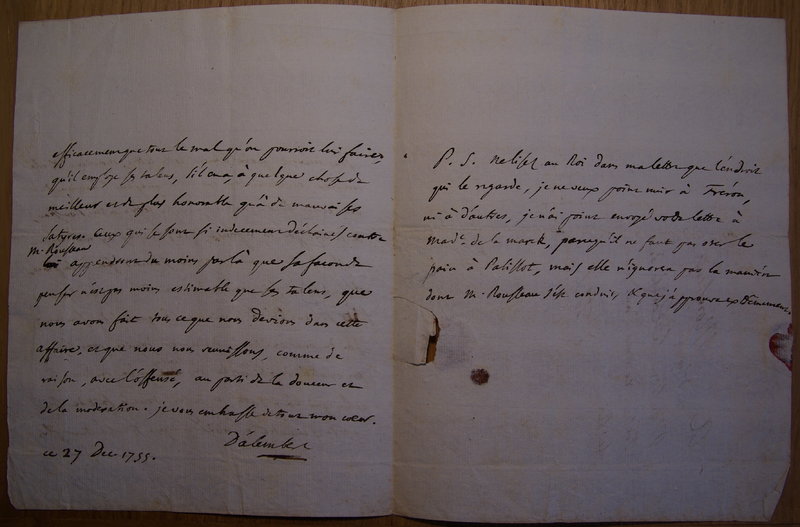 efficacement que tout le mal qu'on pourroit lui faire;
qu'il employe ses talens, s'il en a, à quelque chose de
meilleur et de plus honorable qu'à de mauvaises
satyres. Ceux qui se sont si indecemment déclainés contre
M. Rousseau
apprendront du moins par là que sa façon de
penser n'est pas moins estimable que ses talens, que
nous avons fait tous ce que nous devions dans cette
affaire, et que nous nous reunissons, comme de
raison, avec l'offensé, au parti de la douceur et
de la moderation. je vous embrasse de tout mon coeur.
D'alembert
ce 27 Dec 1755.
P. S. Ne lisez au Roi dans ma lettre que l'endroit
qui le regarde, je ne veux point nuire à Freron,
ni à d'autres, je n'ai point envoyé votre lettre à
Mad.e de la marck, parce qu'il ne faut pas oter le
pain à Palissot, mais elle n'ignorera pas la maniere
dont M. Rousseau s'est conduit, & que j'approuve